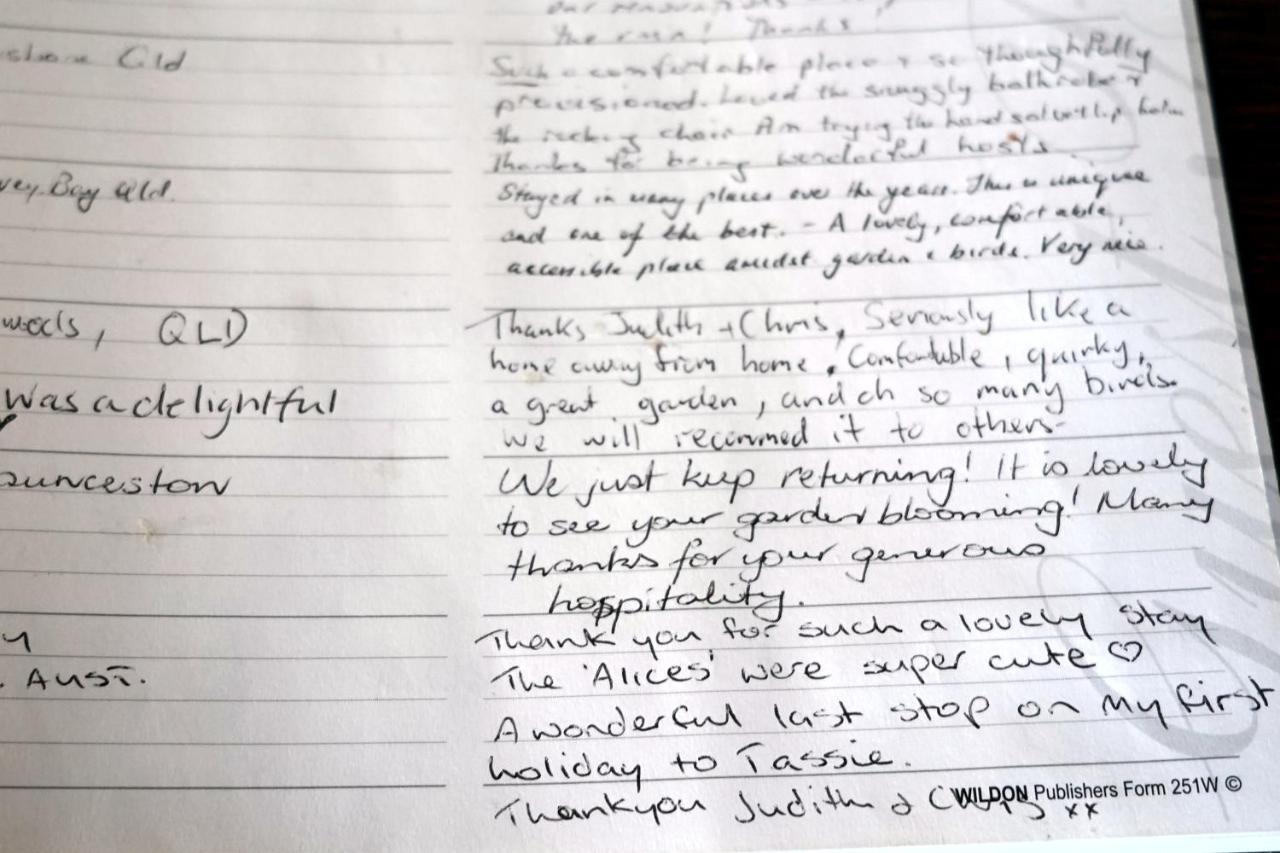 our
the rain! Thanks
Qld
Such a comfortable place & so thoughfully
provisioned. Loved the snuggly bathrobe &
the rocking chair Am trying the hand salve & lip balm
Thanks for being wonderful hosts.
vey Bay Qld.
Stayed in many places over the years. This is unique
and one of the best. - A lovely, comfortable,
accessible place amidst garden & birds. Very nice.
woods, QLD
Thanks Judith + Chris, Seriously like a
home away from home. Comfortable, quirky,
a great garden, and oh so many birds.
We will recommed it to others-
Was a delightful
We just keep returning! It is lovely
aunceston
to see your garden blooming! Many
thanks for your generous
hospitality.
Thank you for such a lovely stay
y
The 'Alices' were super cute ♡
. AUST.
A wonderful last stop on my first
holiday to Tassie.
Thankyou Judith & Chris xx
WILDON Publishers Form 251W ©